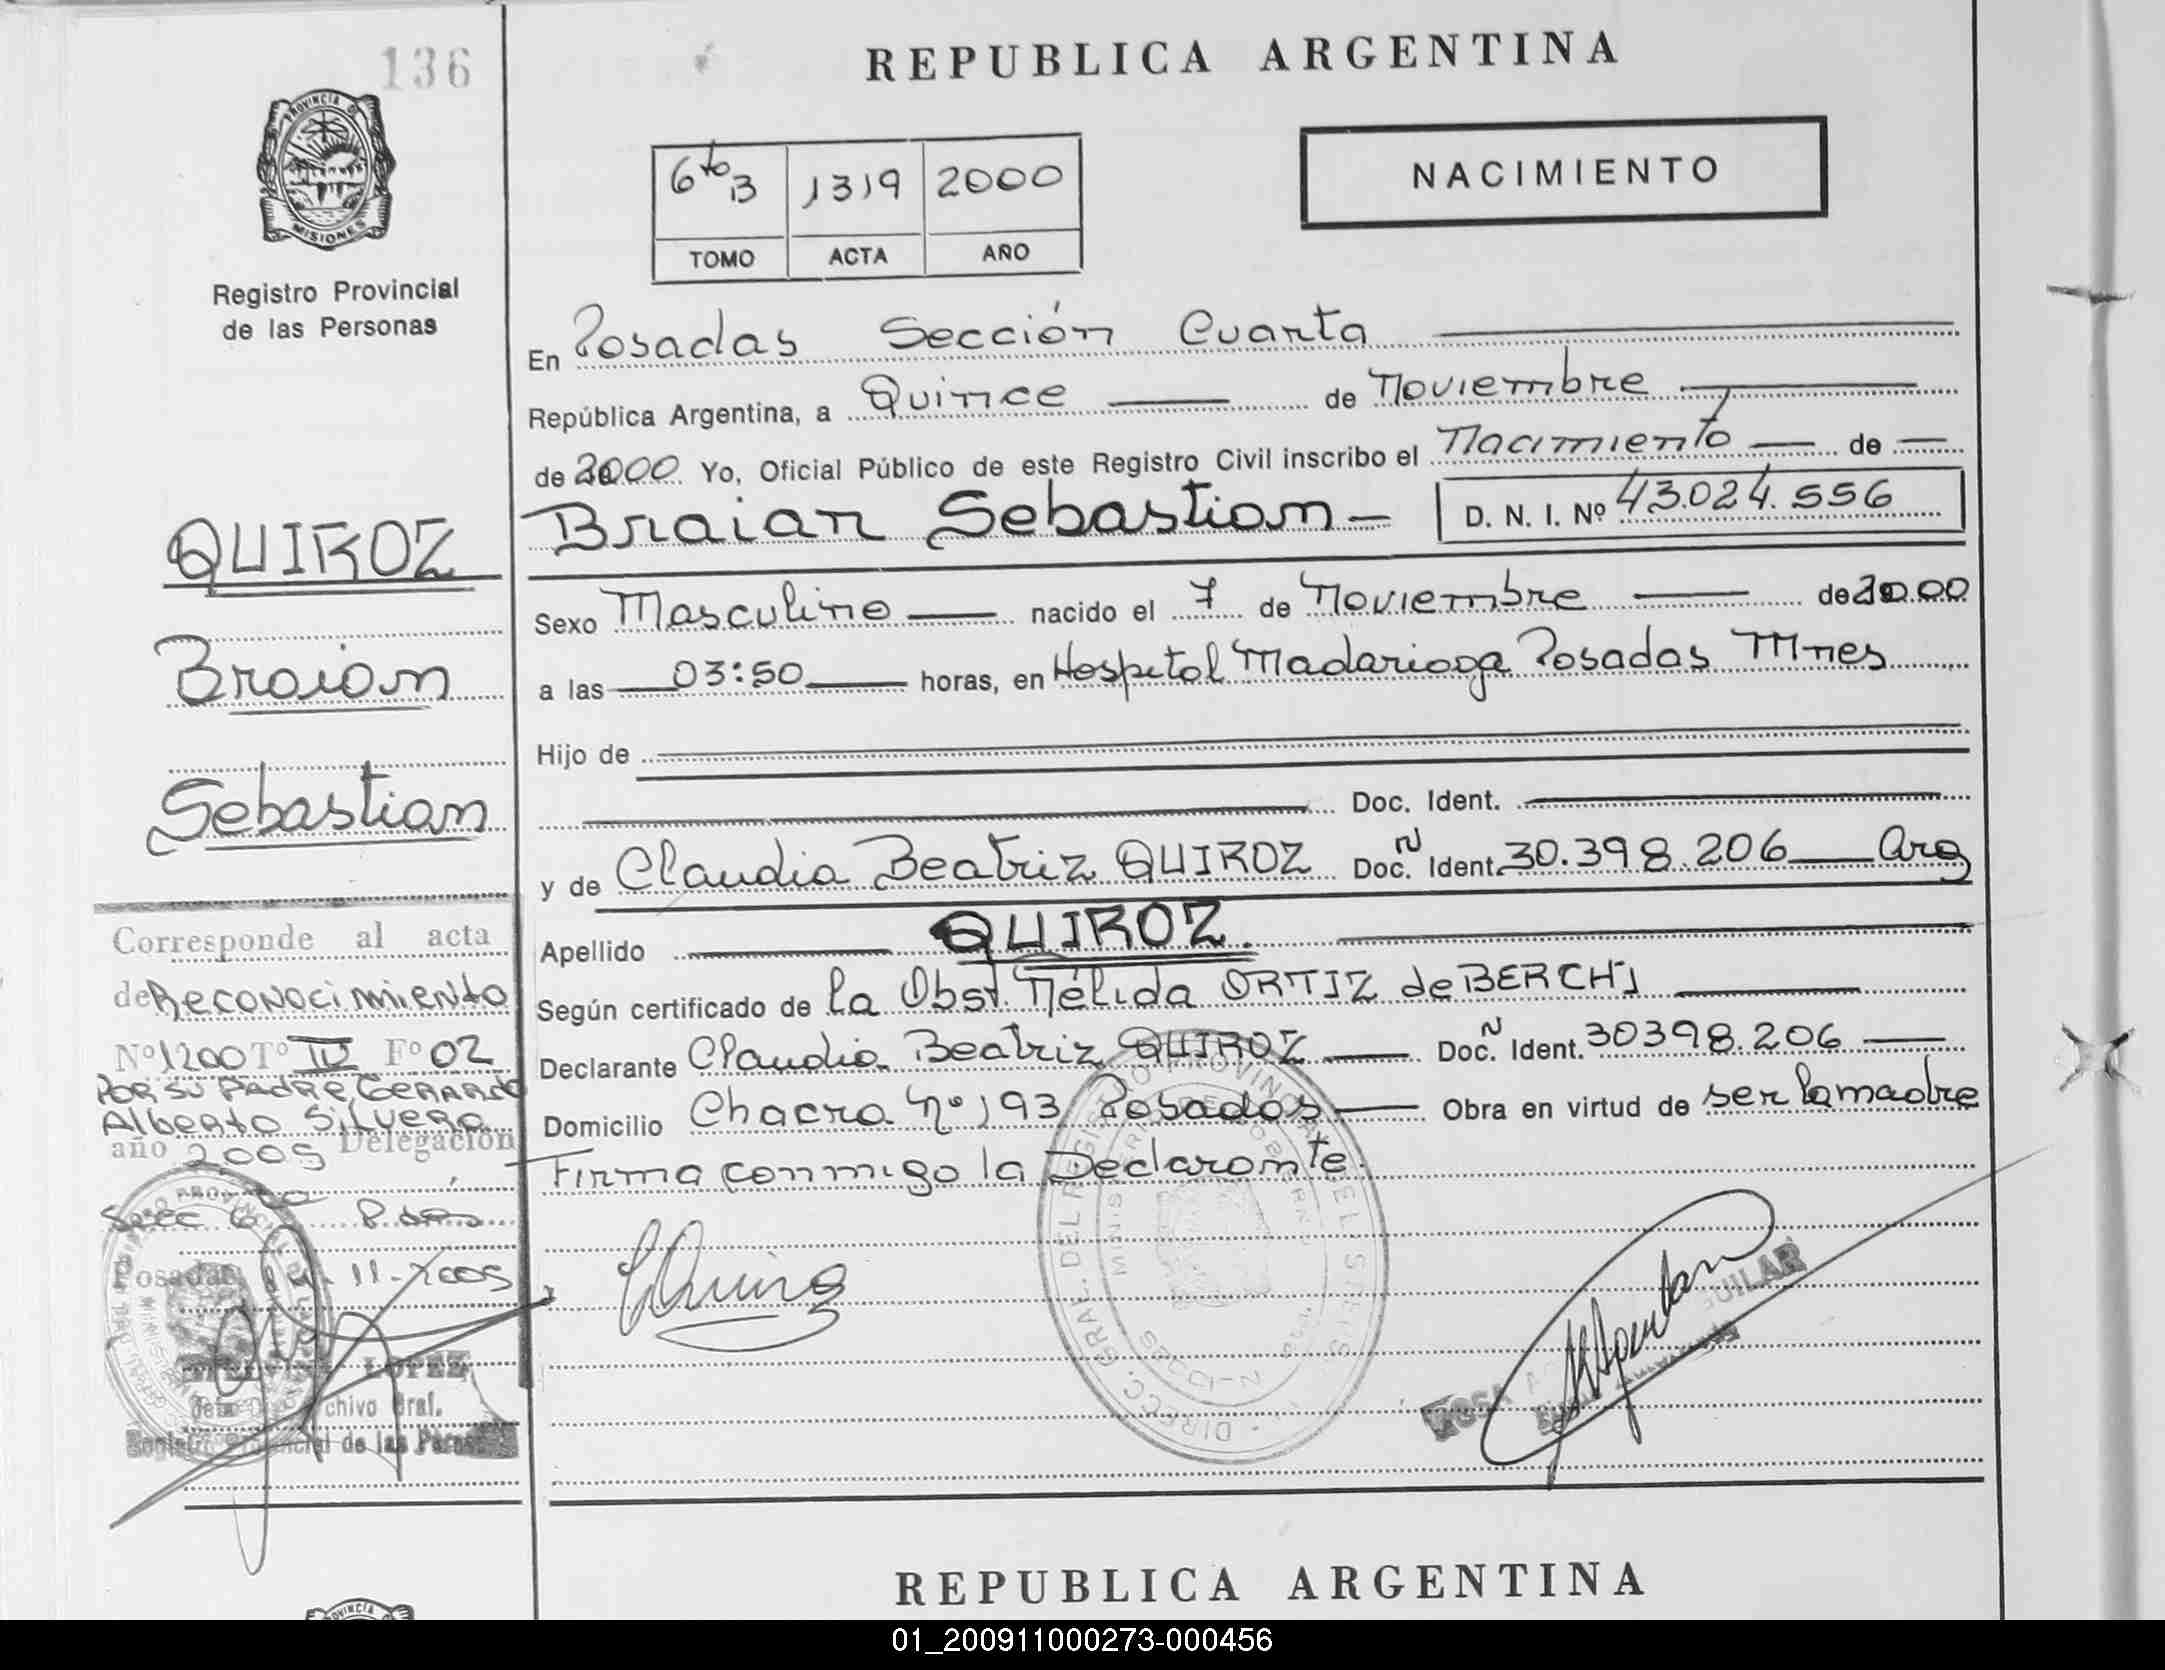 136
PROVINCIA DE
MISIONES
Registro Provincial
de las Personas
QUIROZ
Braian
Sebastian
Corresponde al acta
de Reconocimiento
Nº 1200 Tº IV Fº 02
POR SU PADRE, GERARDO
Alberto Silvero
año 2005 Delegación
Secc 6ta Pdas
Posadas 11-2005
LOPEZ
Archivo Gral.
Registro Provincial de las Personas
REPUBLICA ARGENTINA
6to B 1319 2000
TOMO ACTA AÑO
NACIMIENTO
En Posadas Sección Cuarta
República Argentina, a Quince de Noviembre
de 2000 Yo, Oficial Público de este Registro Civil inscribo el Nacimiento de
Braian Sebastian D. N. I. Nº 43.024.556
Sexo Masculino nacido el 7 de Noviembre de 2000
a las 03:50 horas, en Hospital Madariaga Posadas Mnes
Hijo de
Doc. Ident.
y de Claudia Beatriz QUIROZ Doc. N Ident. 30.398.206 Arg
Apellido QUIROZ.
Según certificado de la Obst. Nélida ORTIZ de BERCHI
Declarante Claudia Beatriz QUIROZ Doc. N Ident. 30398.206
Domicilio Chacra Nº 193 Posadas Obra en virtud de ser la madre
Firma conmigo la Declarante.
DIREC. GRAL. DEL REGISTRO PROVINCIAL DE L
REPUBLICA ARGENTINA
PROVINCIA
01_200911000273-000456